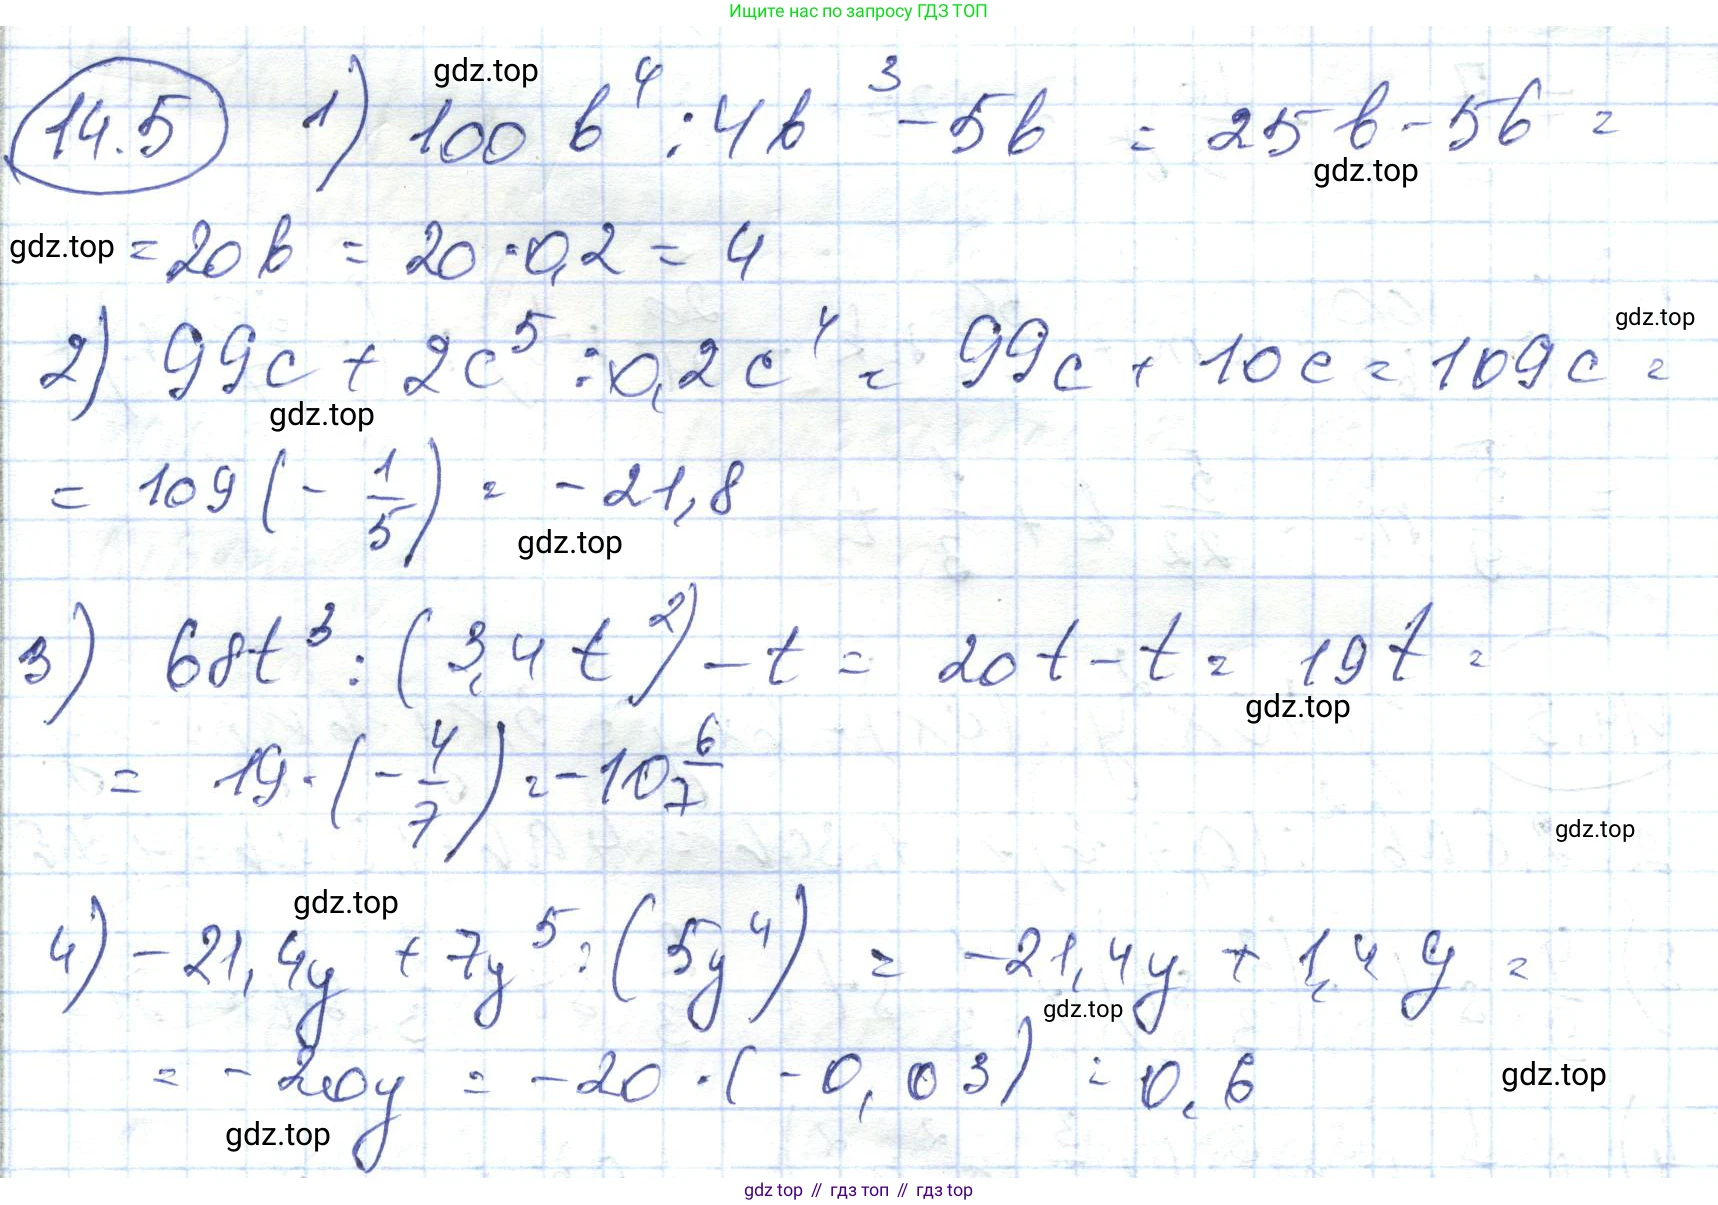 Ищите нас по запросу ГДЗ ТОП
gdz.top
14.5 1) 100b⁴ : 4b³ - 5b = 25b - 5b =
gdz.top
gdz.top = 20b = 20 · 0,2 = 4
gdz.top
2) 99c + 2c⁵ : 0,2c⁴ = 99c + 10c = 109c =
gdz.top
= 109 (- 1/5) = - 21,8
gdz.top
3) 68t³ : (3,4t²) - t = 20t - t = 19t =
gdz.top
= 19 · (- 4/7) = - 10 6/7
gdz.top
gdz.top
4) - 21,4y + 7y⁵ : (5y⁴) = - 21,4y + 1,4y =
gdz.top
= - 20y = - 20 · (- 0,03) = 0,6
gdz.top
gdz.top
gdz top // гдз топ // gdz top